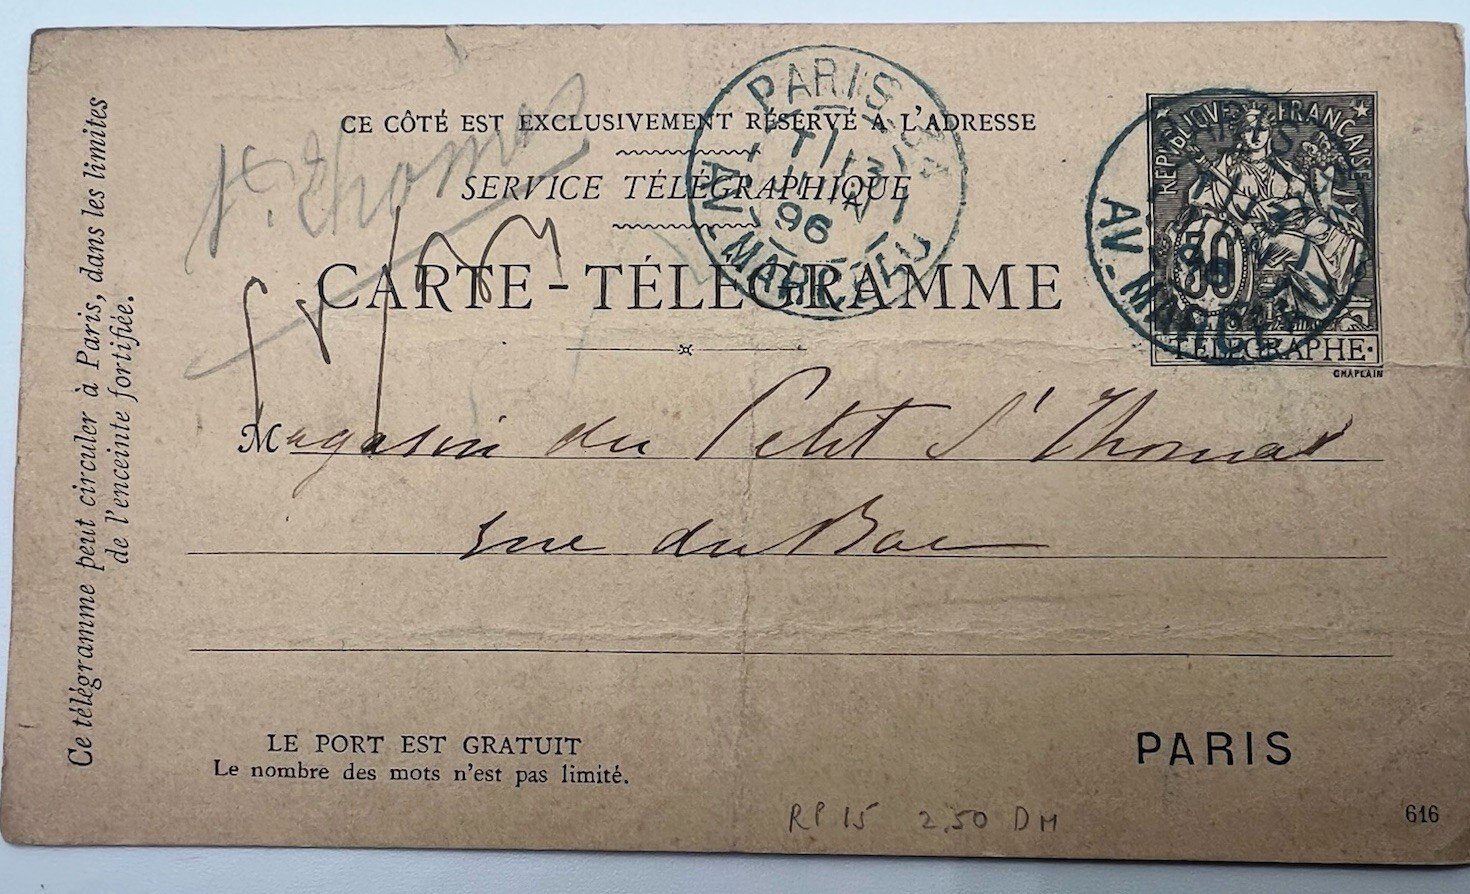 Ce télégramme peut circuler à Paris, dans les limites
de l'enceinte fortifiée.
St. Thomas
CE CÔTÉ EST EXCLUSIVEMENT RÉSERVÉ A L'ADRESSE
SERVICE TÉLÉGRAPHIQUE
CARTE-TÉLÉGRAMME
PARIS
13
96
AV. MARCEAU
RÉPUBLIQUE FRANÇAISE
50
TÉLÉGRAPHE
CHAPLAIN
PARIS
AV. MARCEAU
Magasin du Petit St Thomas
rue du Bac
LE PORT EST GRATUIT
Le nombre des mots n'est pas limité.
PARIS
RP 15 2,50 DM
616